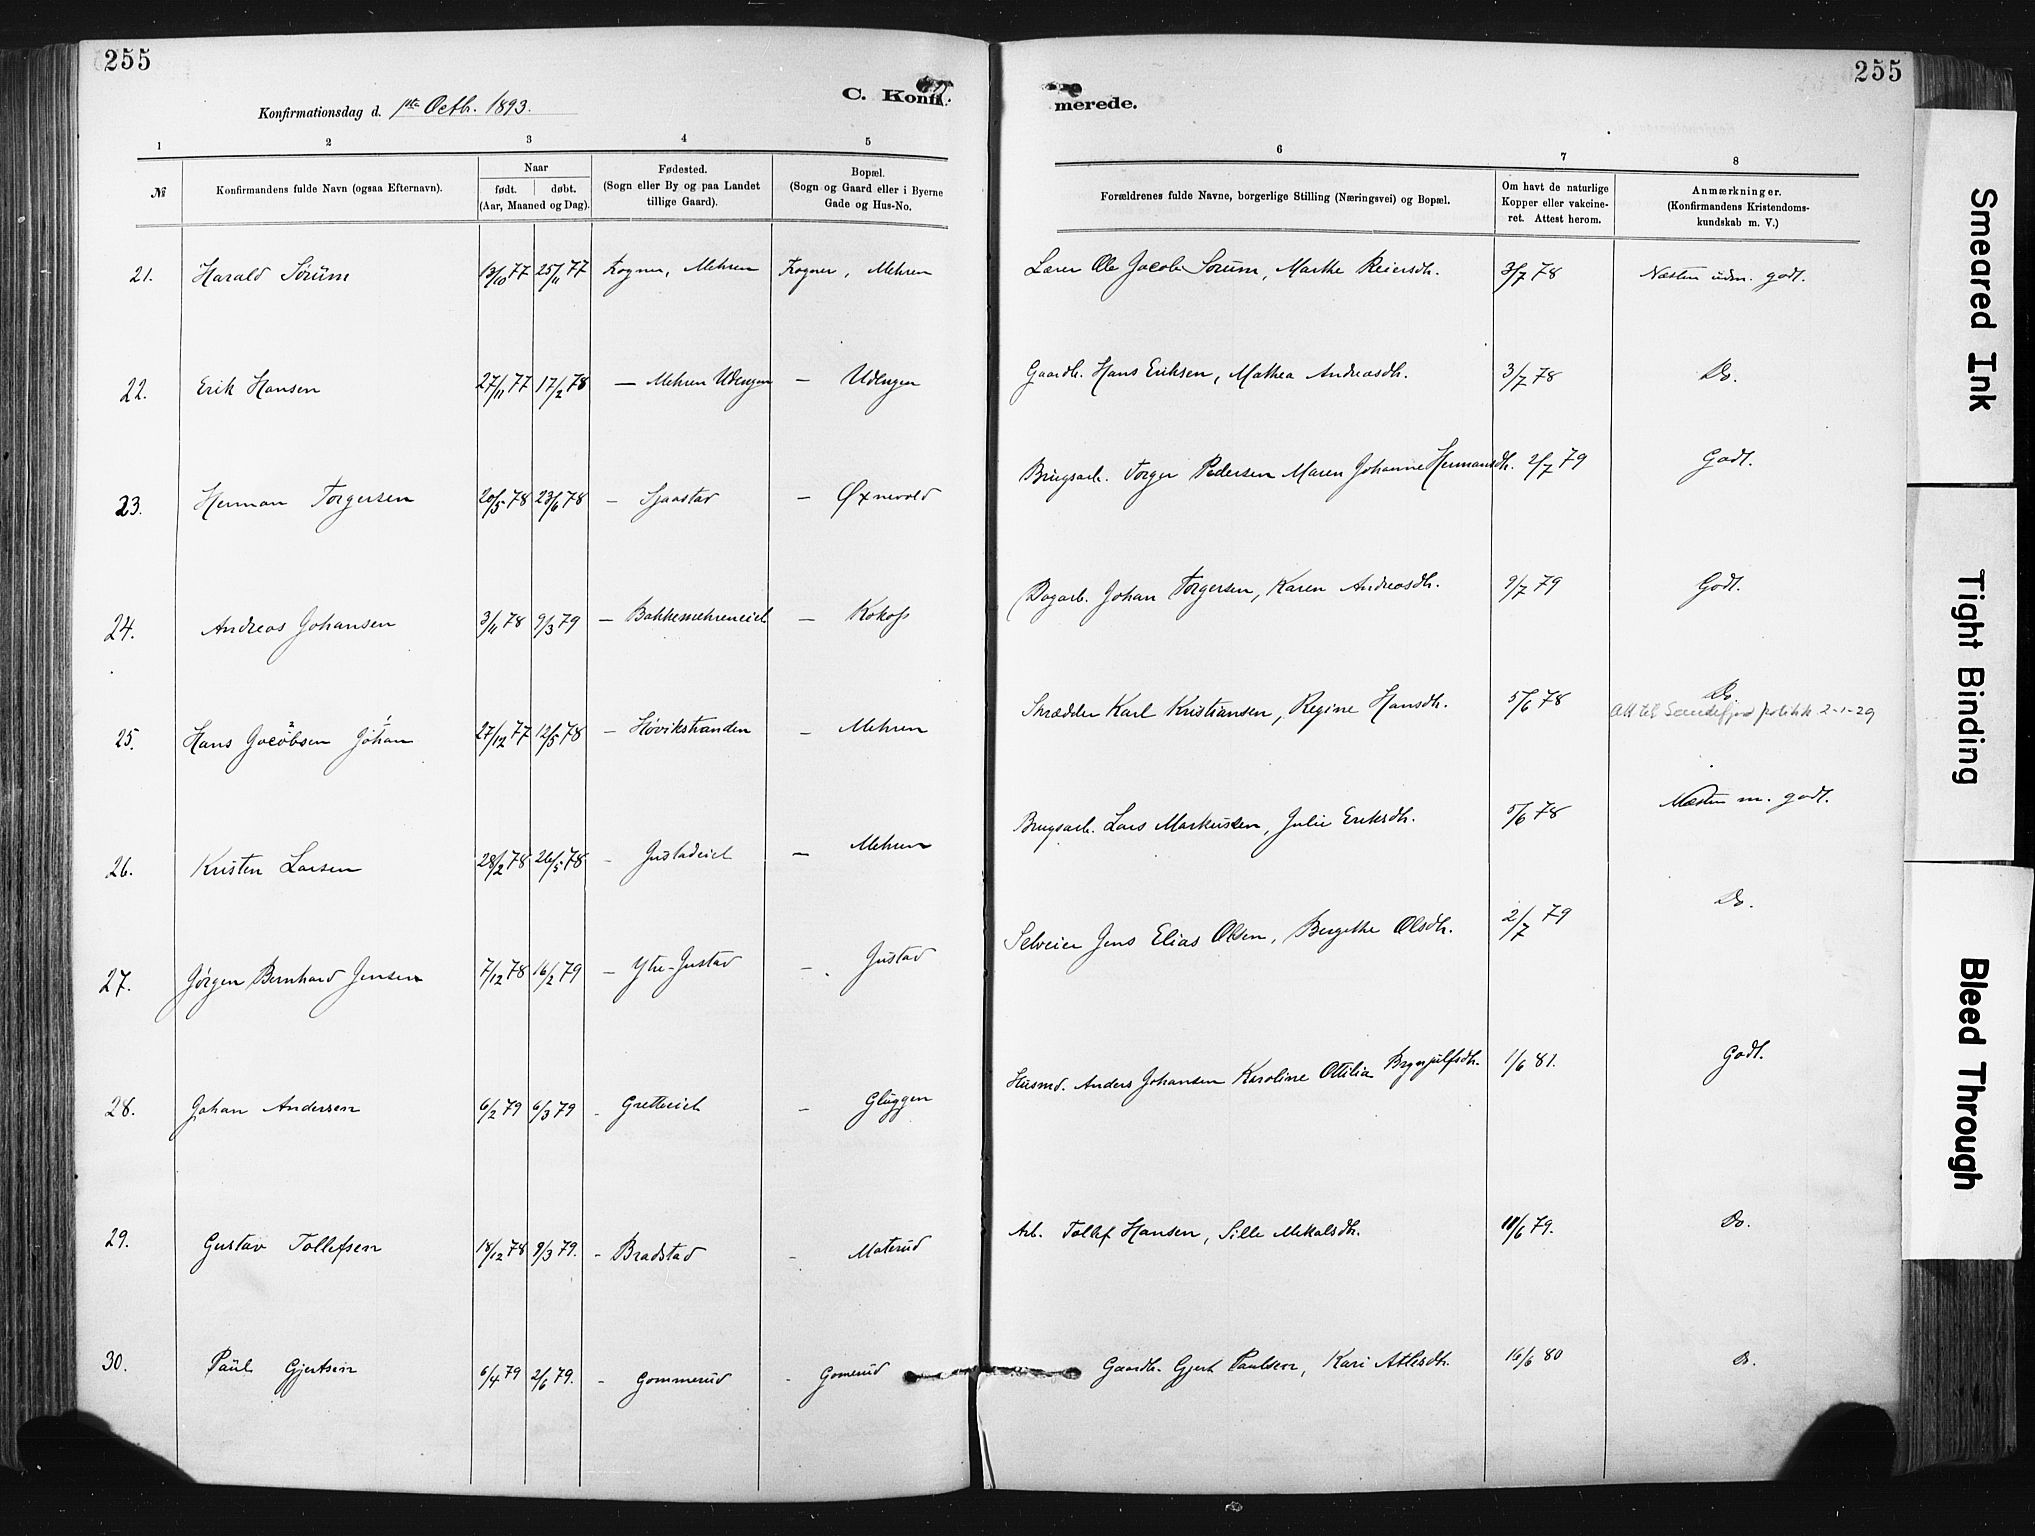 255
255
C. Konfir
merede.
Konfirmationsdag d. 1ste Octb. 1893.
1 2 3 4 5 6 7 8
№ Konfirmandens fulde Navn (ogsaa Efternavn). Naar født. døbt. (Aar, Maaned og Dag). Fødested. (Sogn eller By og paa Landet tillige Gaard). Bopæl. (Sogn og Gaard eller i Byerne Gade og Hus-No. Forældrenes fulde Navne, borgerlige Stilling (Næringsvei) og Bopæl. Om havt de naturlige Kopper eller vakcineret. Attest herom. Anmærkninger. (Konfirmandens Kristendomskundskab m. V.)
21. Harald Sørum 13/10 77 25/11 77 Frogner, Mehren Frogner, Mehren Lærer Ole Jacobs Sørum, Marthe Reiersdh. 3/7 78 Næsten udm. godt.
22. Erik Hansen 27/11 77 17/2 78 — Mehren Udengen — Udengen Gaardb. Hans Eriksen, Mathea Andreasdh. 3/7 78 Do.
23. Herman Torgersen 20/5 78 23/6 78 — Sjaastad — Øxnevold Brugsarb. Torger Pedersen Maren Johanne Hermansdh. 2/7 79 Godt.
24. Andreas Johansen 3/11 78 9/3 79 — Bakkemehreneiet — Kokoss Dagarb. Johan Torgersen, Karen Andreasdh. 9/7 79 Godt.
25. Hans Jacobsen Johan 27/12 77 12/5 78 — Høvikstranden — Mehren Skrædder Karl Kristiansen, Regine Hansdh. 5/6 78 Do.
Att til Sandefjord politik 2-1-29
26. Kristen Larsen 28/2 78 26/5 78 — Gustadeiet — Mehren Brugsarb. Lars Markussen, Julie Eriksdh. 5/6 78 Næsten m. godt.
27. Jørgen Bernhard Jensen 7/12 78 16/2 79 — Ytre-Gustad — Gustad Selveier Jens Elias Olsen, Bergethe Olsdh. 2/7 79 Do.
28. Johan Andersen 6/2 79 6/3 79 - Gretteeiet — Gluggen Husmd. Anders Johansen Karoline Ottilia Brynjulfsdh. 1/6 81. Godt.
29. Gustav Tollefsen 18/12 78 9/3 79. - Bradstad - Materud Arb. Tollef Hansen, Sille Mekalsdh. 11/6 79. Do.
30. Paul Gjertsen 6/4 79 2/6 79. - Gommerud - Gomerud Gaardb. Gjert Paulsen, Kari Atlesdh. 16/6 80 Do.
Smeared Ink
Tight Binding
Bleed Through